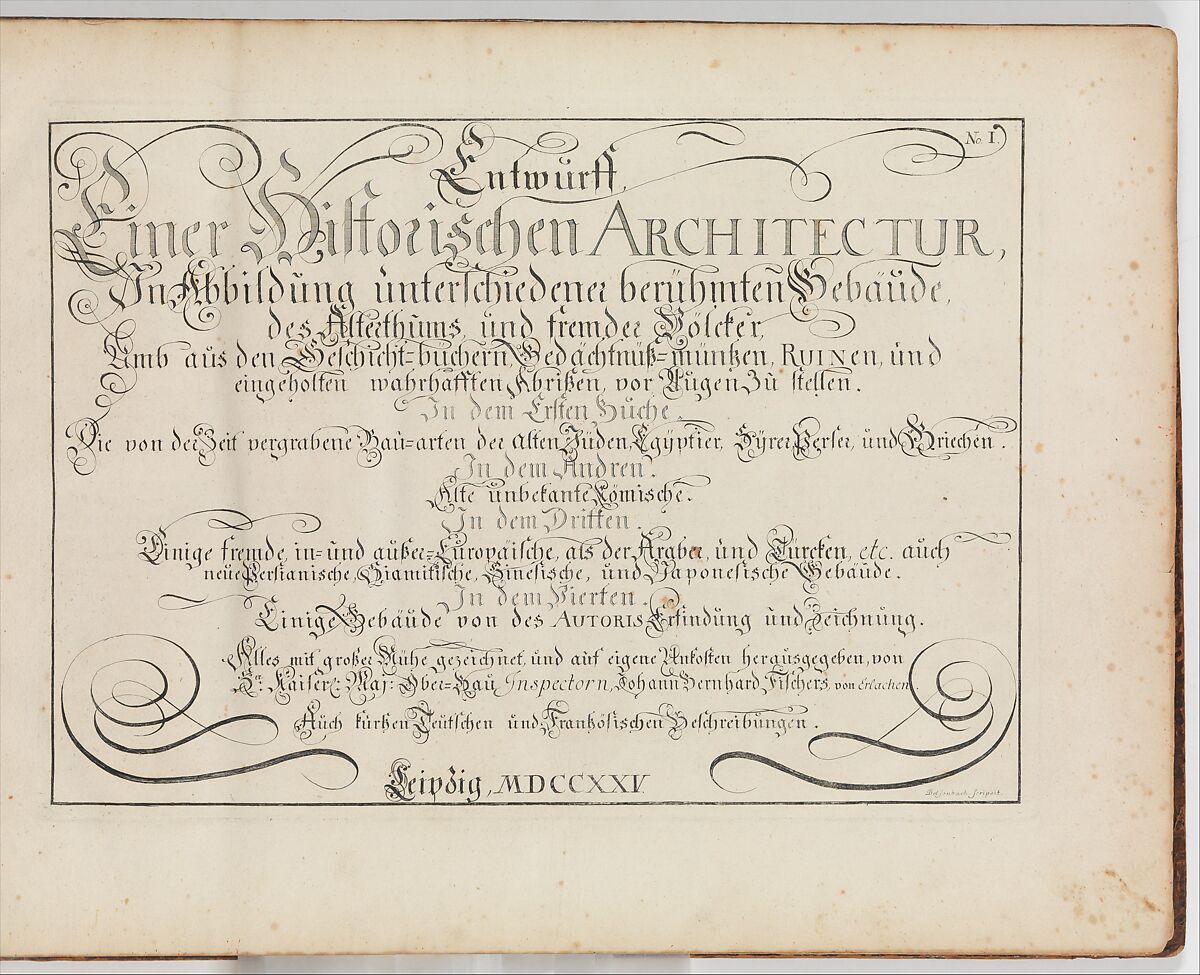 No. I.
Entwurff,
Einer Historischen ARCHITECTUR,
In Abbildung unterschiedener berühmten Gebäude,
des Alterthums, und fremder Völcker,
Umb aus den Geschicht-büchern, Gedächtnüß-müntzen, RUINEN, und
eingeholten wahrhafften Abrißen, vor Augen zu stellen.
In dem Ersten Buche.
Die von der Zeit vergrabene Bau-arten der alten Jüden, Egyptier, Syrer, Perser, und Griechen.
In dem Andren.
Alte unbekante Römische.
In dem Dritten.
Einige fremde, in- und außer-Europäische, als der Araber, und Turcken, etc. auch
neüe Persianische, Siamitische, Sinesische, und Japonesische Gebäude.
In dem Vierten.
Einige Gebäude von des AUTORIS Erfindung und Zeichnung.
Alles mit großer Mühe gezeichnet, und auf eigene Unkosten herausgegeben, von
Sr. Kaiserl: Maj: Ober-Bau Inspectorn, Johann Bernhard Fischers, von Erlachen
Auch kurtzen Teutschen und Frantzösischen Beschreibungen.
Leipzig, MDCCXXV.